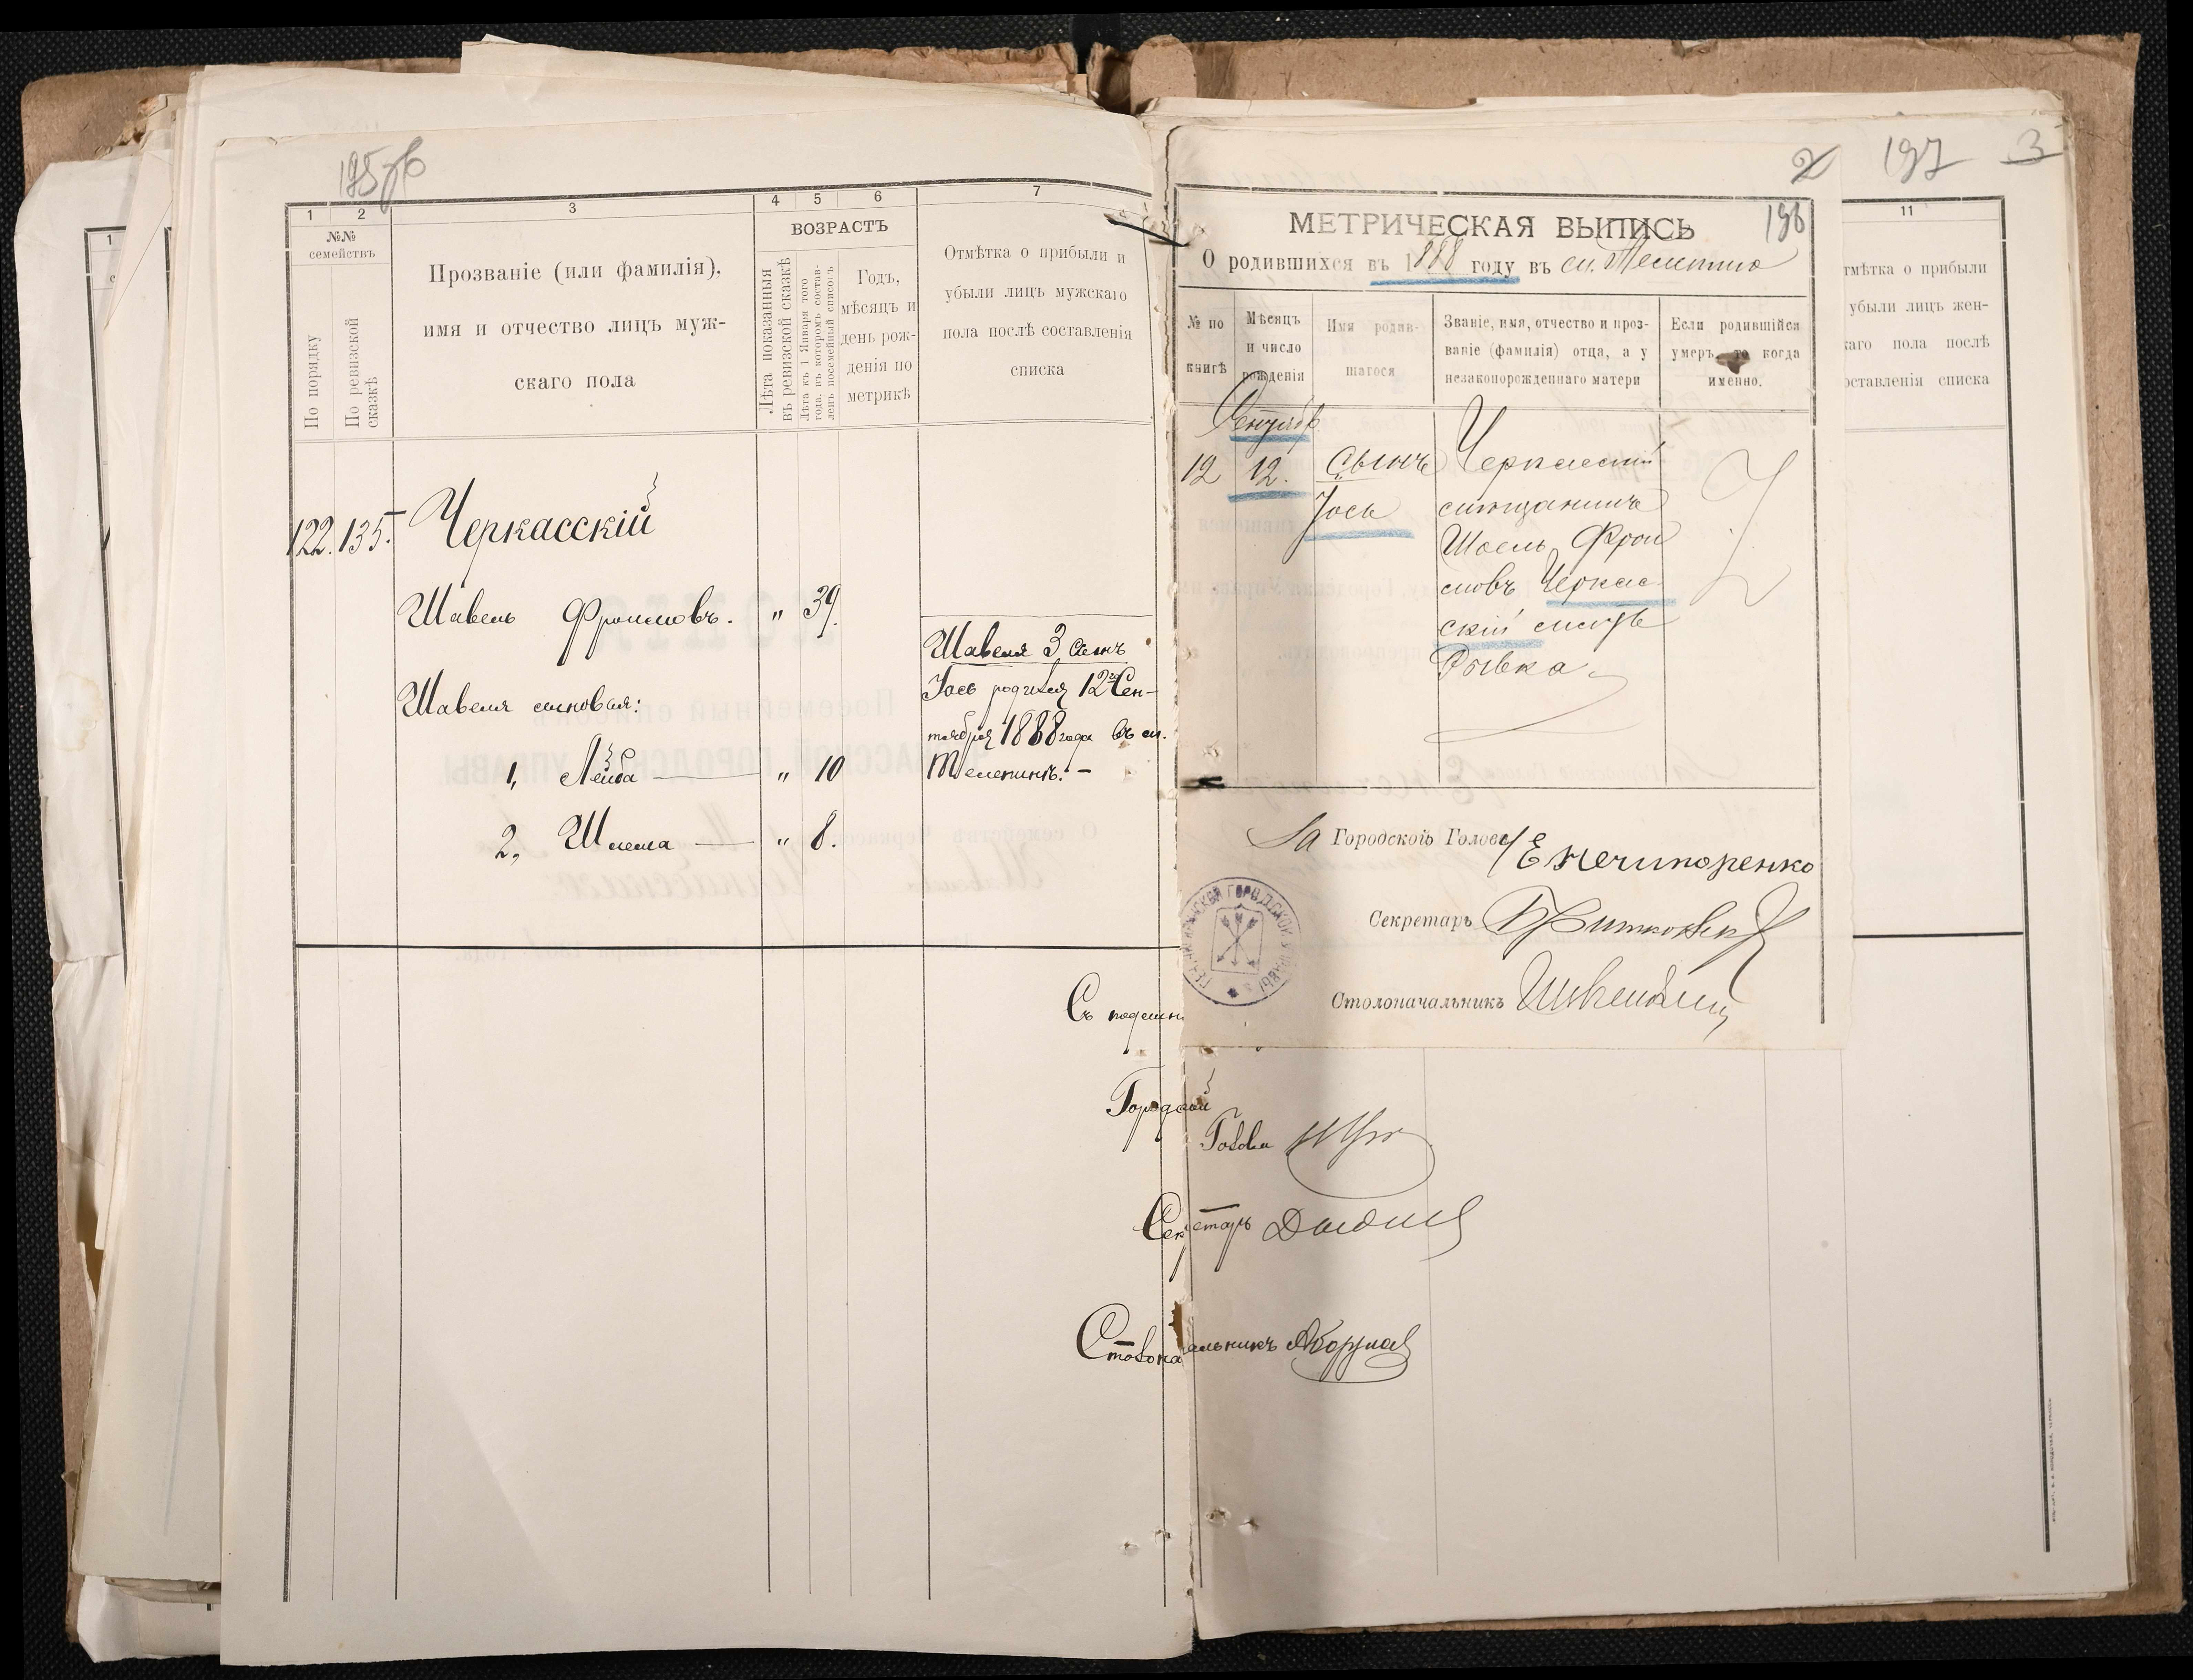 195об
1
2
3
4
5
6
7
№№
семействъ
По порядку
По ревизской сказкѣ
Прозваніе (или фамилія),
имя и отчество лицъ муж-
скаго пола
ВОЗРАСТЪ
Лѣта показанныя
въ ревизской сказкѣ
Лѣта къ 1 Января того
года, въ которомъ состав-
ленъ посемейный списокъ
Годъ,
мѣсяцъ и
день рож-
денія по
метрикѣ
Отмѣтка о прибыли и
убыли лицъ мужскаго
пола послѣ составленія
списка
122. 135. Черкасскій
Шавель Фроимовъ. " 39.
Шавеля сыновья:
1, Лейба — " 10
2, Шлема — " 8.
Шавеля 3 сынъ
Іось родился 12 Сен-
тября 1888 года въ м.
Телепинѣ. –
Съ подлин
Городской
Голова
Секретарь
Столоначальникъ
2
197
3
196
МЕТРИЧЕСКАЯ ВЫПИСЬ
О родившихся въ 1888 году въ м. Телепино
№ по
книгѣ
Мѣсяцъ
и число
рожденія
Имя родив-
шагося
Званіе, имя, отчество и проз-
ваніе (фамилія) отца, а у
незаконорожденнаго матери
Если родившійся
умеръ, то когда
именно.
Сентябр.
12 12. Сынъ Черкасскій
Іось мѣщанинъ
Шаель Фрои
мовъ Черкас
скій мать
Рывка
За Городской Головы Е Нечипоренко
Секретарь
Столоначальникъ
11
тмѣтка о прибыли
убыли лицъ жен-
каго пола послѣ
оставленія списка